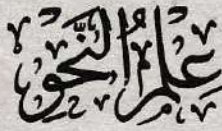 علم النحو